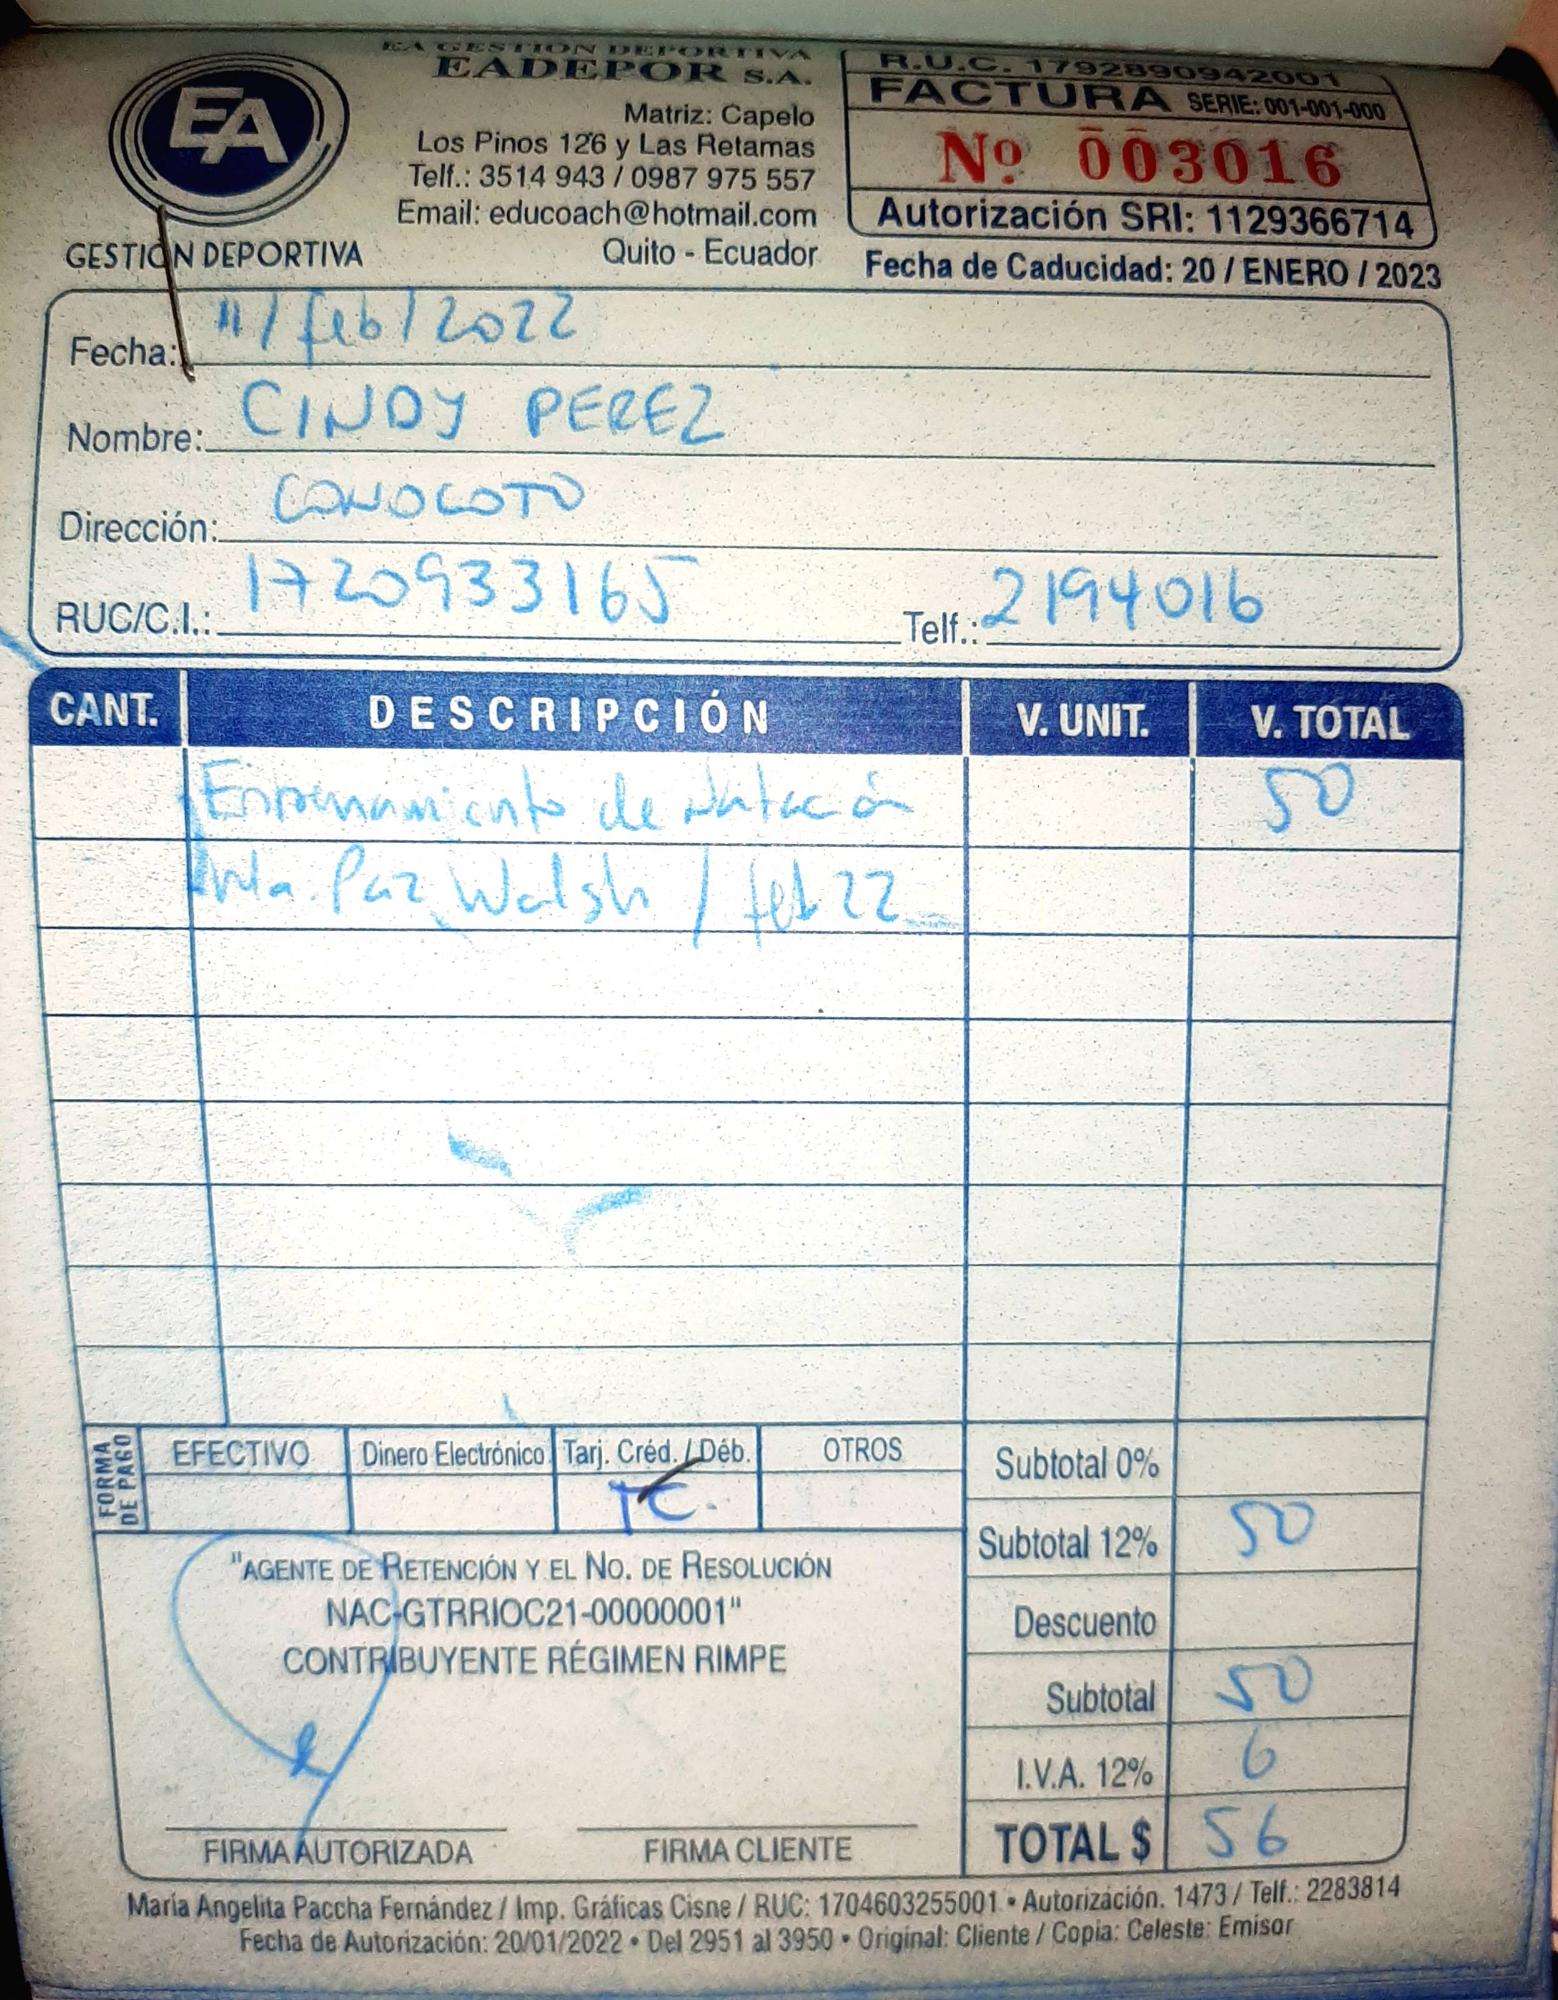 EA GESTIÓN DEPORTIVA
EADEPOR S.A.
Matriz: Capelo
Los Pinos 126 y Las Retamas
Telf.: 3514 943 / 0987 975 557
Email: educoach@hotmail.com
Quito - Ecuador
EA
GESTIÓN DEPORTIVA
R.U.C. 1792890942001
FACTURA SERIE: 001-001-000
Nº 003016
Autorización SRI: 1129366714
Fecha de Caducidad: 20 / ENERO / 2023
Fecha: 11/feb/2022
Nombre: CINDY PEREZ
Dirección: CONOCOTO
RUC/C.I.: 1720933165 Telf.: 2194016
CANT. DESCRIPCIÓN V. UNIT. V. TOTAL
Entrenamiento de Natación 50
Paz Walsh / feb 22
FORMA DE PAGO
EFECTIVO Dinero Electrónico Tarj. Créd. / Déb. OTROS
TC.
Subtotal 0%
Subtotal 12% 50
Descuento
Subtotal 50
I.V.A. 12% 6
TOTAL $ 56
"AGENTE DE RETENCIÓN Y EL NO. DE RESOLUCIÓN
NAC-GTRRIOC21-00000001"
CONTRIBUYENTE RÉGIMEN RIMPE
FIRMA AUTORIZADA FIRMA CLIENTE
María Angelita Paccha Fernández / Imp. Gráficas Cisne / RUC: 1704603255001 • Autorización. 1473 / Telf.: 2283814
Fecha de Autorización: 20/01/2022 • Del 2951 al 3950 • Original: Cliente / Copia: Celeste: Emisor